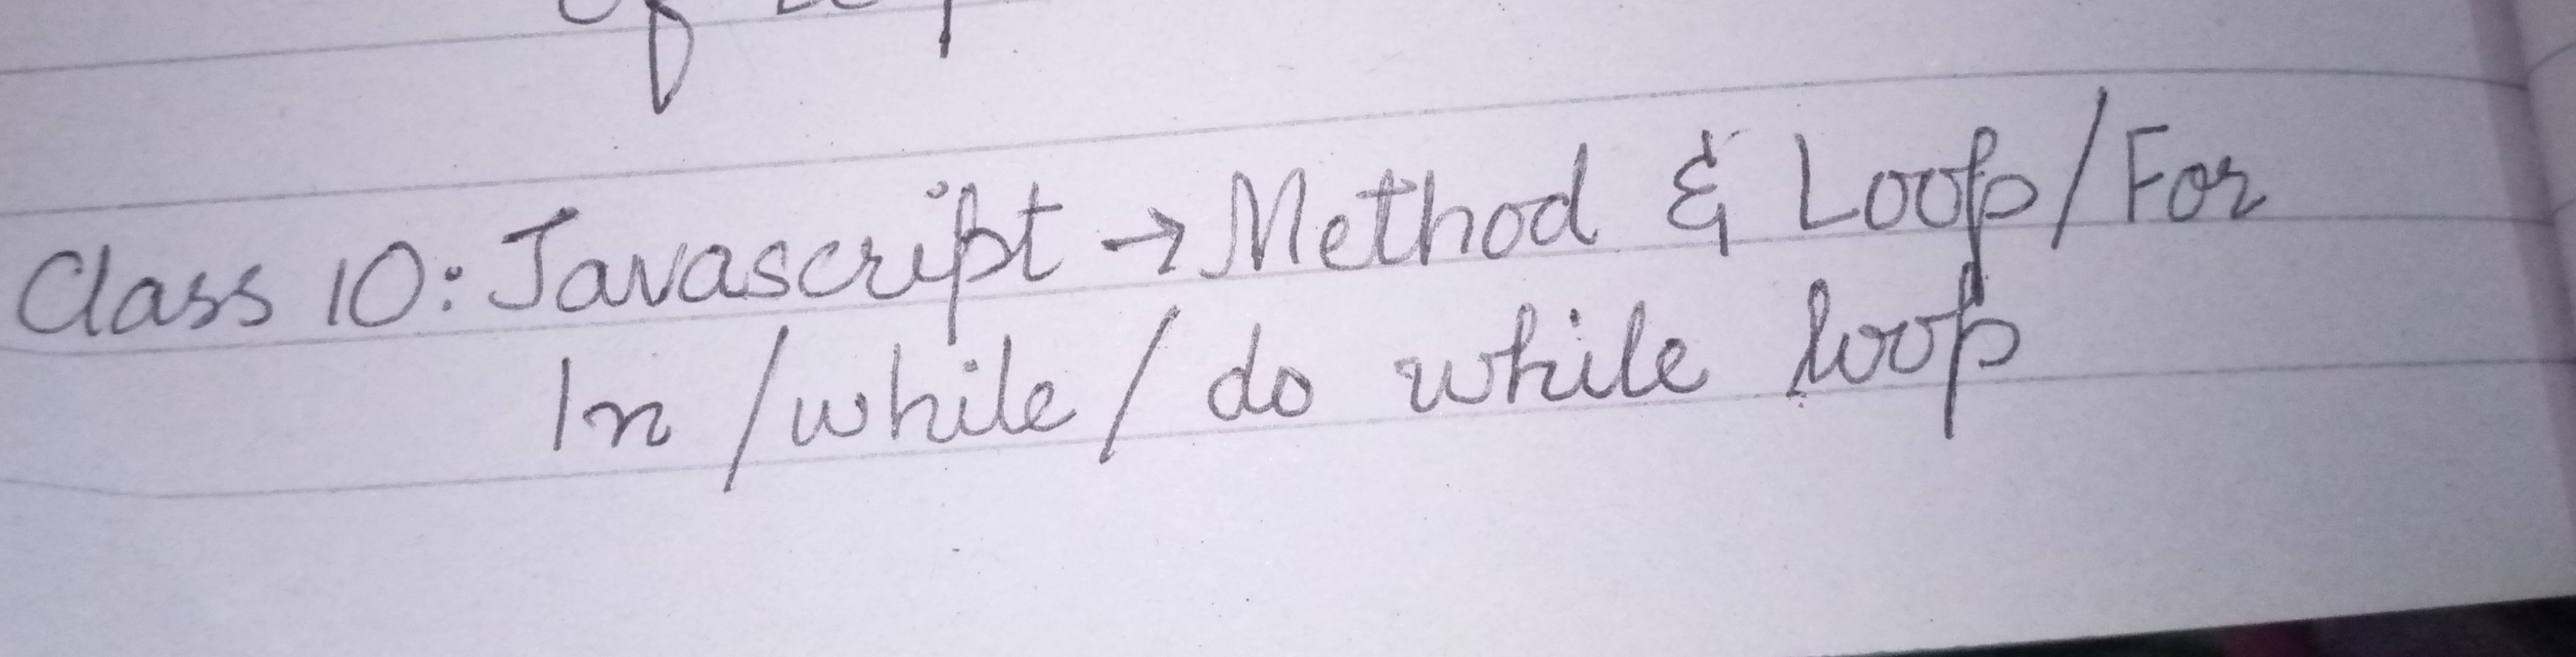 Class 10: Javascript → Method & Loop/For
In/while/do while loop